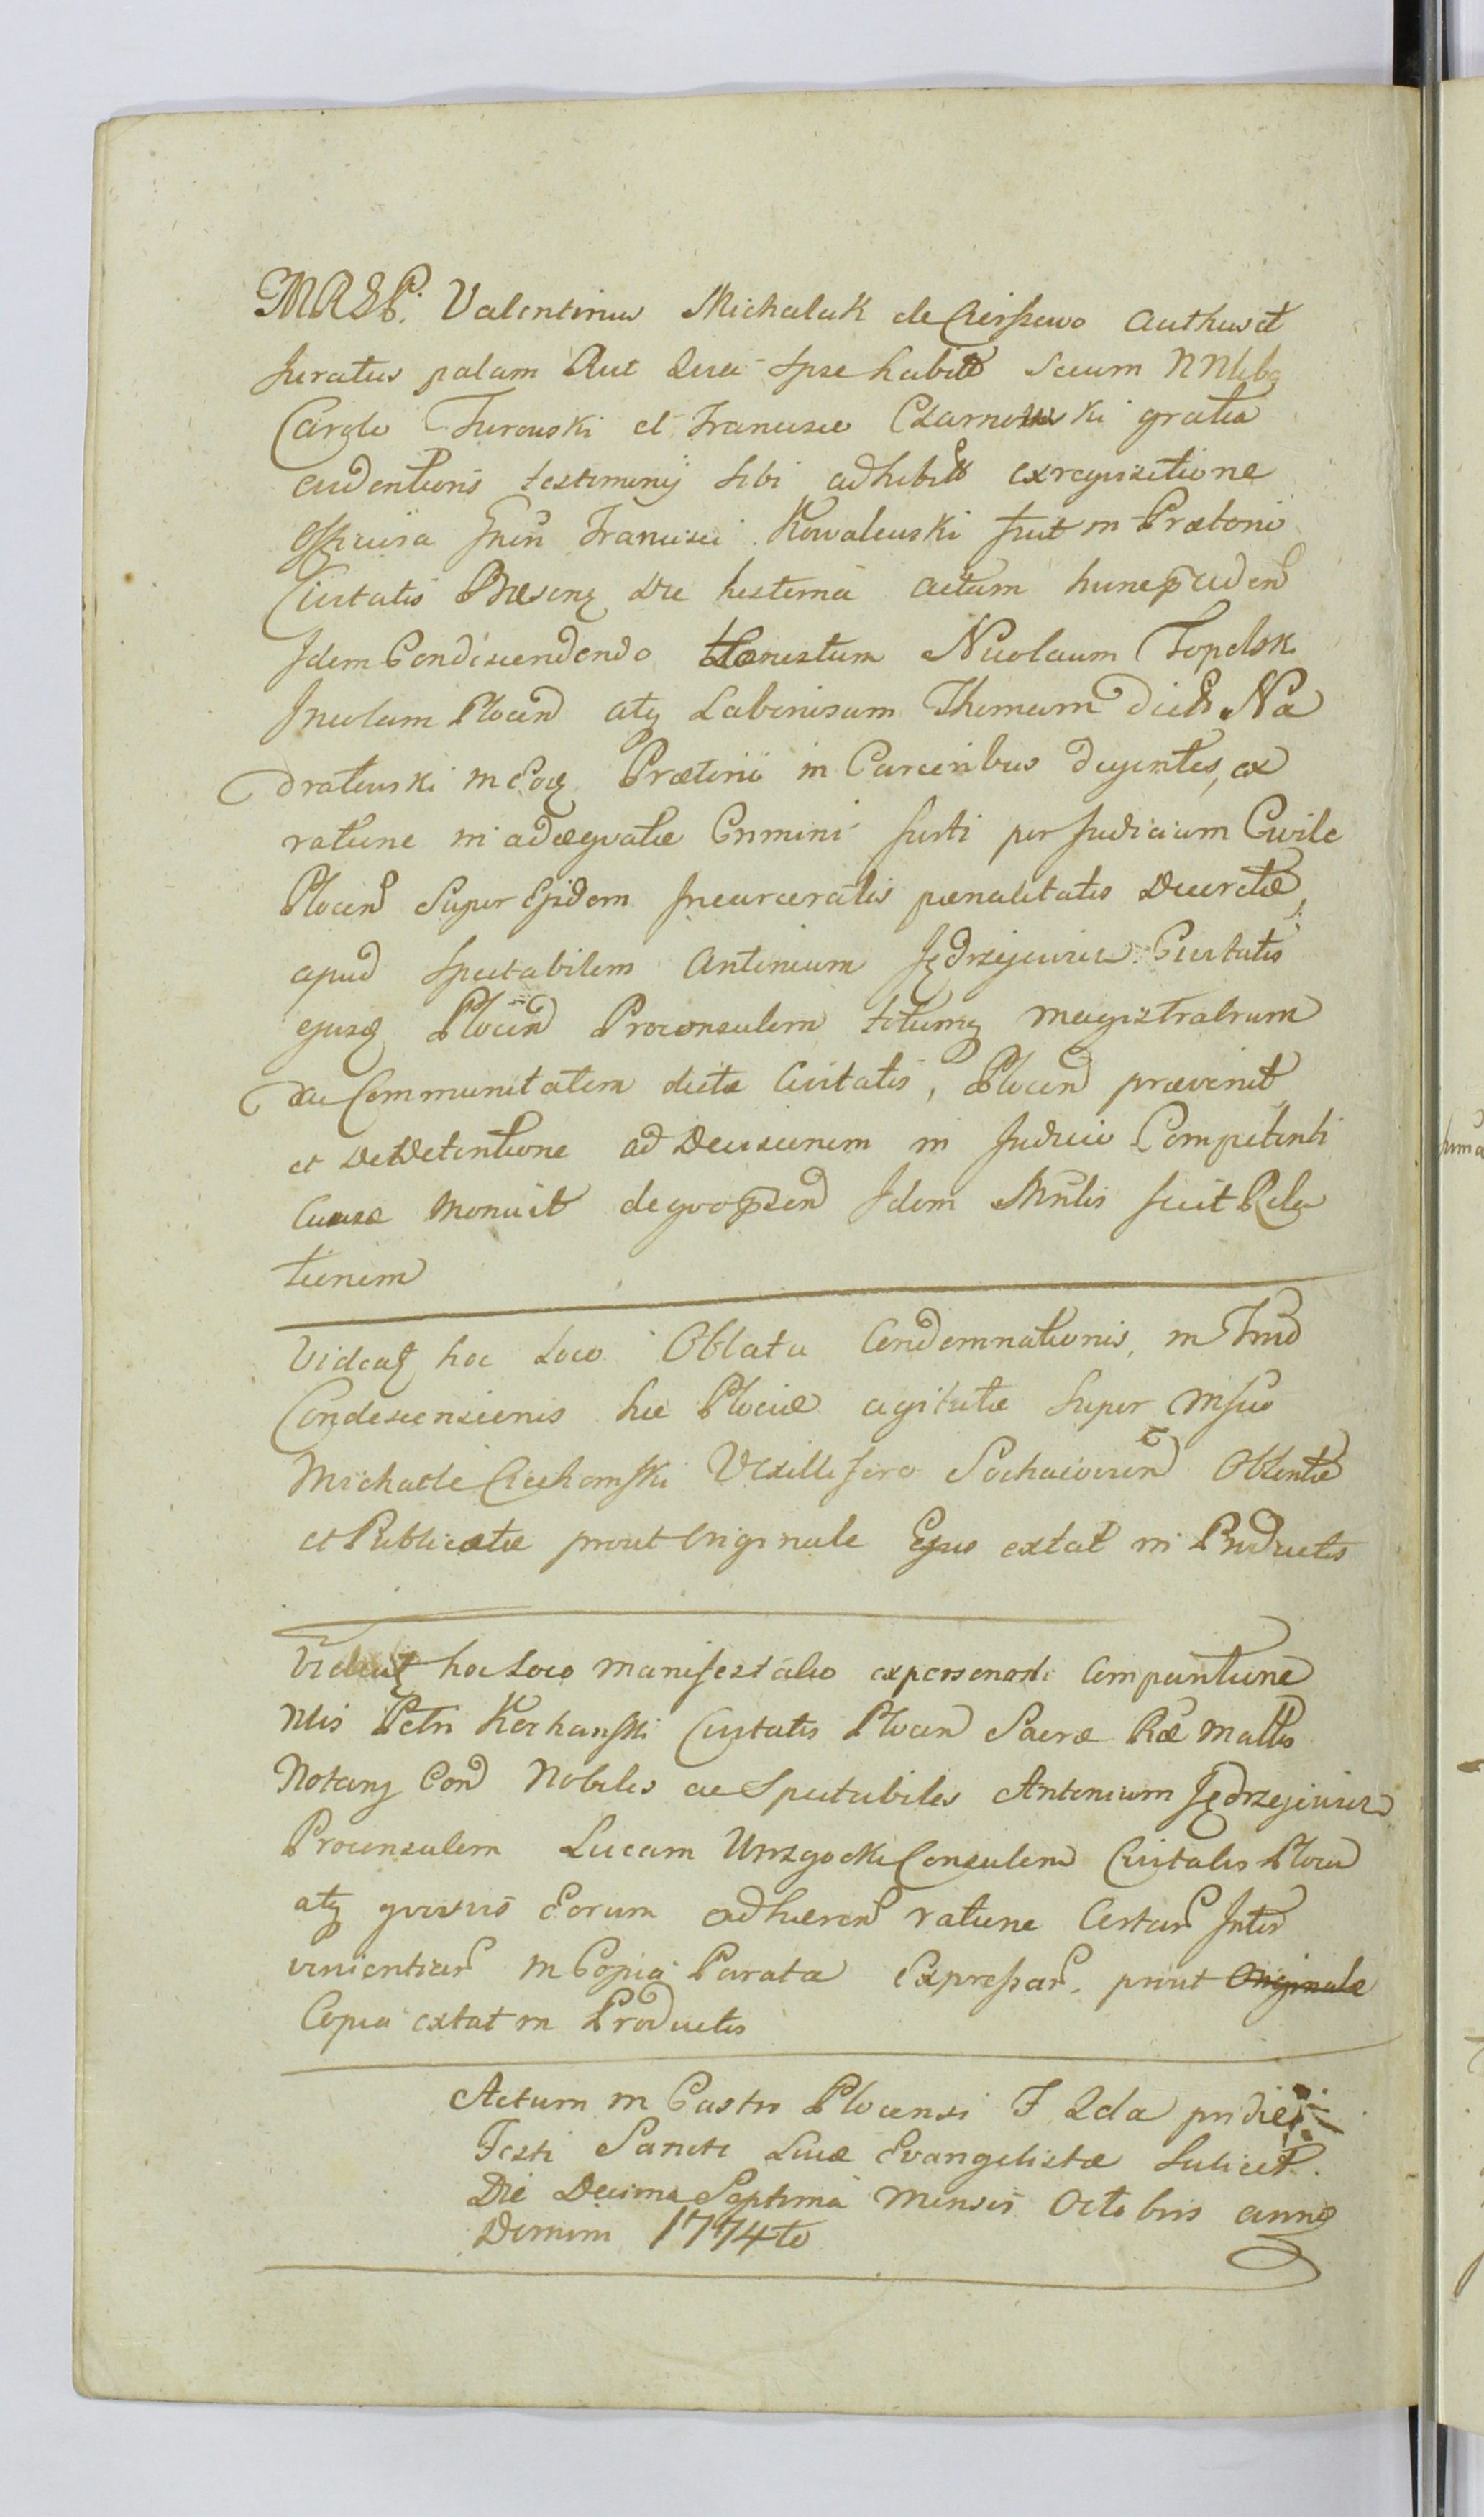 MRSP. Valentinus Michalak de Cierszewo authus et
Juratus palam Rnt Qua Ipse habitt secum NNlibg
Carolo Turowski et Francisco Czarnowski gratia
evidentioris testimonij sibi adhibitt ex requisitione
Officiosa Francisci Kowalewski fuit in Prætorio
Civitatis Die hesterna actum hunc præceden
Idem Condescendendo Honestum Nicolaum Topolsk
Incolam Plocen atq Laboriosum Thomam dict Na
dratowski in Eoq Prætorio in Carceribus degentes, ex
ratione in adæquatæ Crimini furti per Judicium Civile
Plocen Super Ejsdem Incarceratis pænalitatis Decretæ,
apud Spectabilem Antonium Jędrzejewicz Civitatis
ejusq Plocen Proconsulem totumq magistratum
ac Communitatem dictæ Civitatis, Plocen prævenit
et de Detentione ad Decisionem in Judicio Competenti
Causæ monuit de quo præsen Idem Mnlis fecit Rela
tionem
Videatq hoc Loco Oblata Condemnationis, in Tmo
Condescensionis hic Plociæ agitatæ Super Mfco
Michaele Ciechomski Vexillifero Sochacovien Obtentæ
et Publicatæ prout Originale Ejus extat in Productis
Videatq hoc Loco manifestatio ex personali Comparitione
Nlis Petri Kochanski Civitatis Plocen Sacræ Ræ Mattis
Notarij Con Nobiles ac Spectabiles Antonium Jędrzejewicz
Proconsulem Lucam Consulem Civitatis Plocen
atq quosvis Eorum adhæren ratione Certar Inter
venientiar in Copia Parata Expressar. prout Originale
Copia extat in Productis
Actum in Castro Plocensi F 2da pridie
Festi Sancti Lucæ Evangelistæ Scilicet.
Die Decima Septima Mensis Octobris anno
Domini 1774to